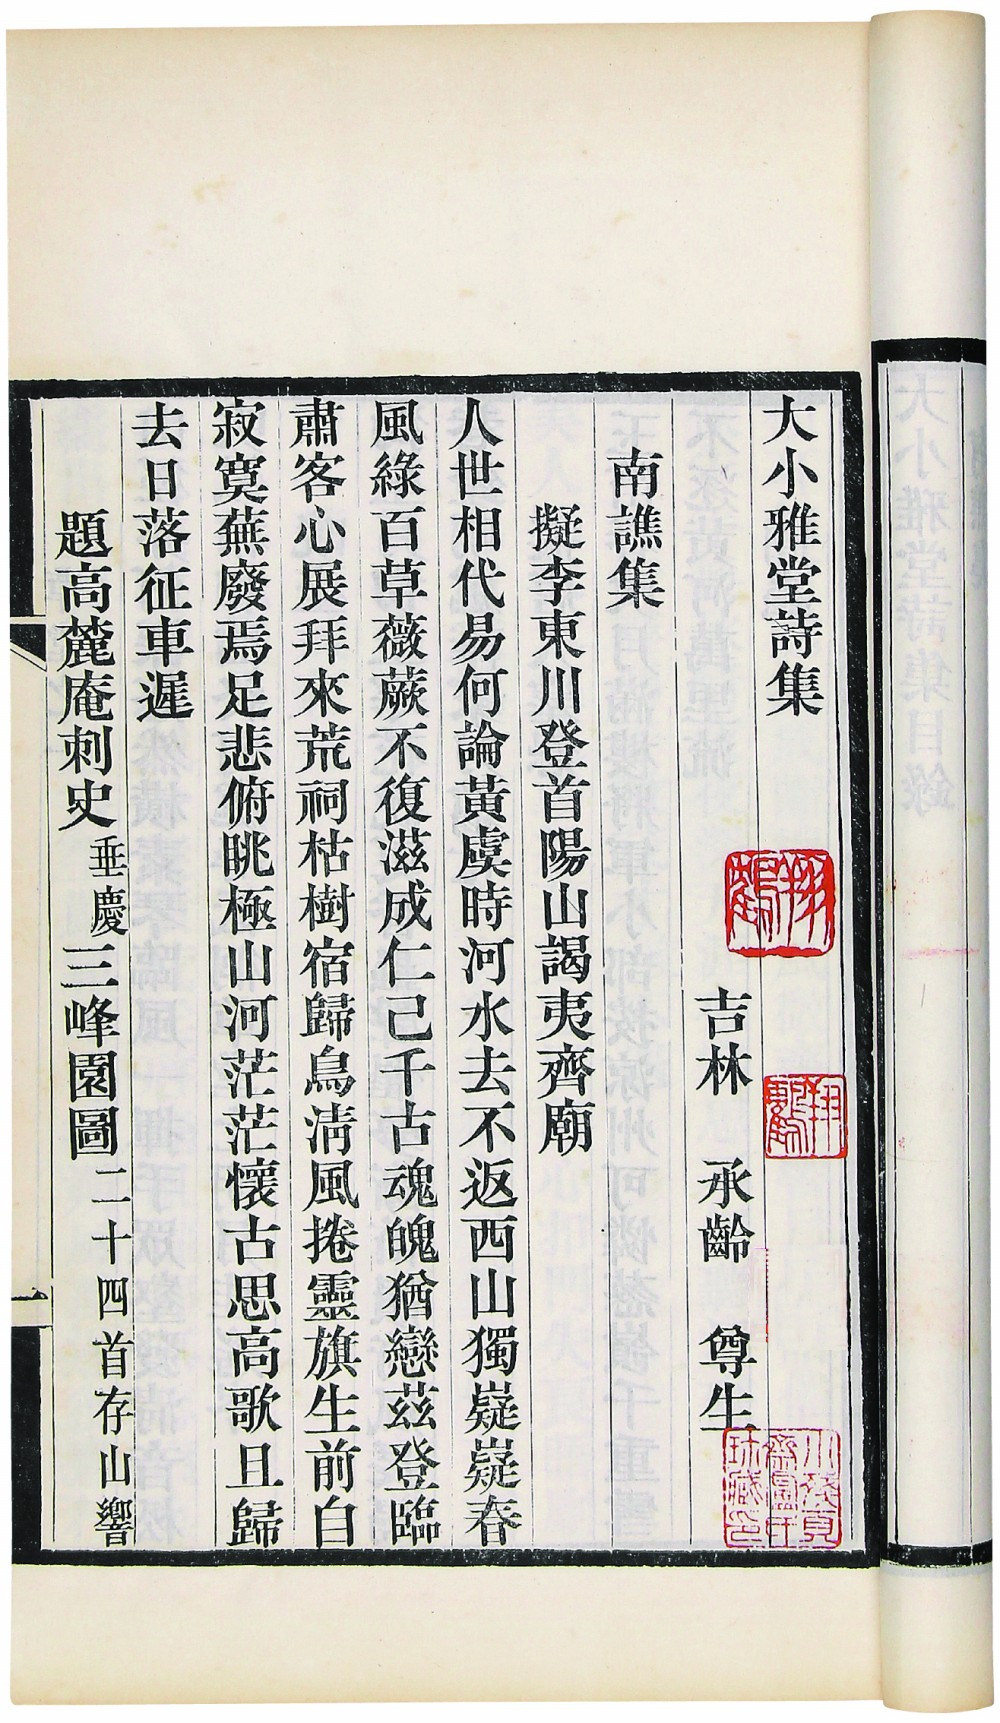 大小雅堂詩集
吉林　承齡　尊生
南譙集
擬李東川登首陽山謁夷齊廟
人世相代易何論黃虞時河水去不返西山獨嶷嶷春
風綠百草薇蕨不復滋成仁已千古魂魄猶戀茲登臨
肅客心展拜來荒祠枯樹宿歸鳥清風捲靈旗生前自
寂寞蕪廢焉足悲俯眺極山河茫茫懷古思高歌且歸
去日落征車遲
題高麓庵刺史垂慶三峰園圖二十四首存山響
一
大小雅堂詩集目錄